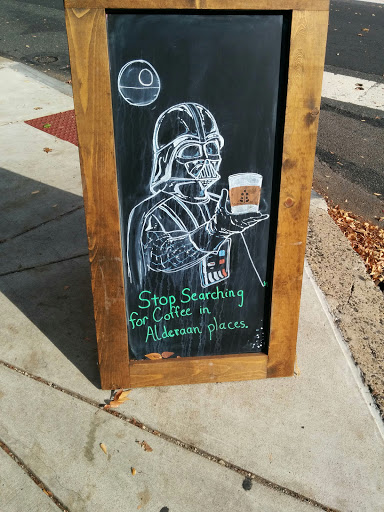 Stop Searching
for Coffee in
Alderaan places.